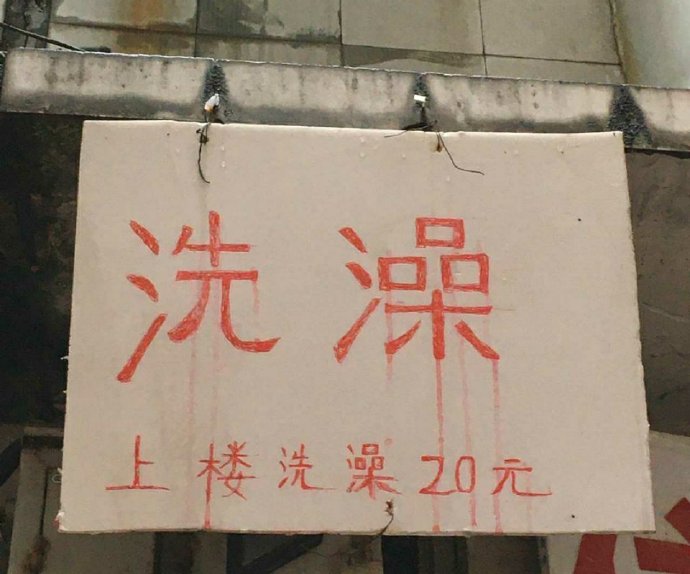 洗澡
上楼洗澡20元